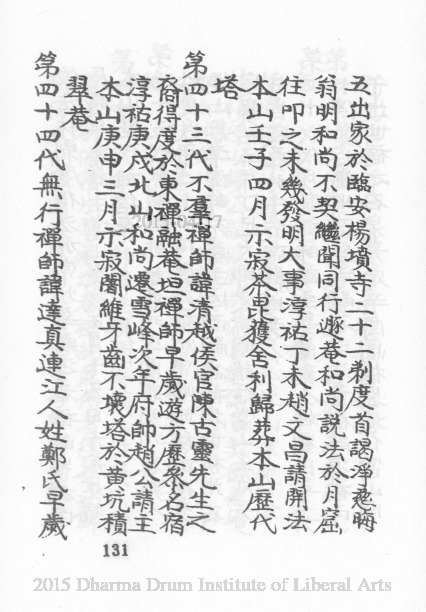 五出家於臨安楊墳寺二十二剃度首謁淨慈晦
翁明和尚不契繼聞同行遯菴和尚說法於月窟
往叩之未幾發明大事淳祐丁未趙文昌請開法
本山壬子四月示寂茶毘獲舍利歸葬本山歷代
塔
第四十三代不羣禪師諱清越侯官陳古靈先生之
裔得度於東禪融菴垣禪師早歲遊方歷參名宿
淳祐庚戌北山和尚遷雪峰次年府帥趙公請主
本山庚申三月示寂闍維牙齒不壞塔於黄坑積
翠菴
第四十四代無行禪師諱達真連江人姓鄭氏早歲
131
2015 Dharma Drum Institute of Liberal Arts